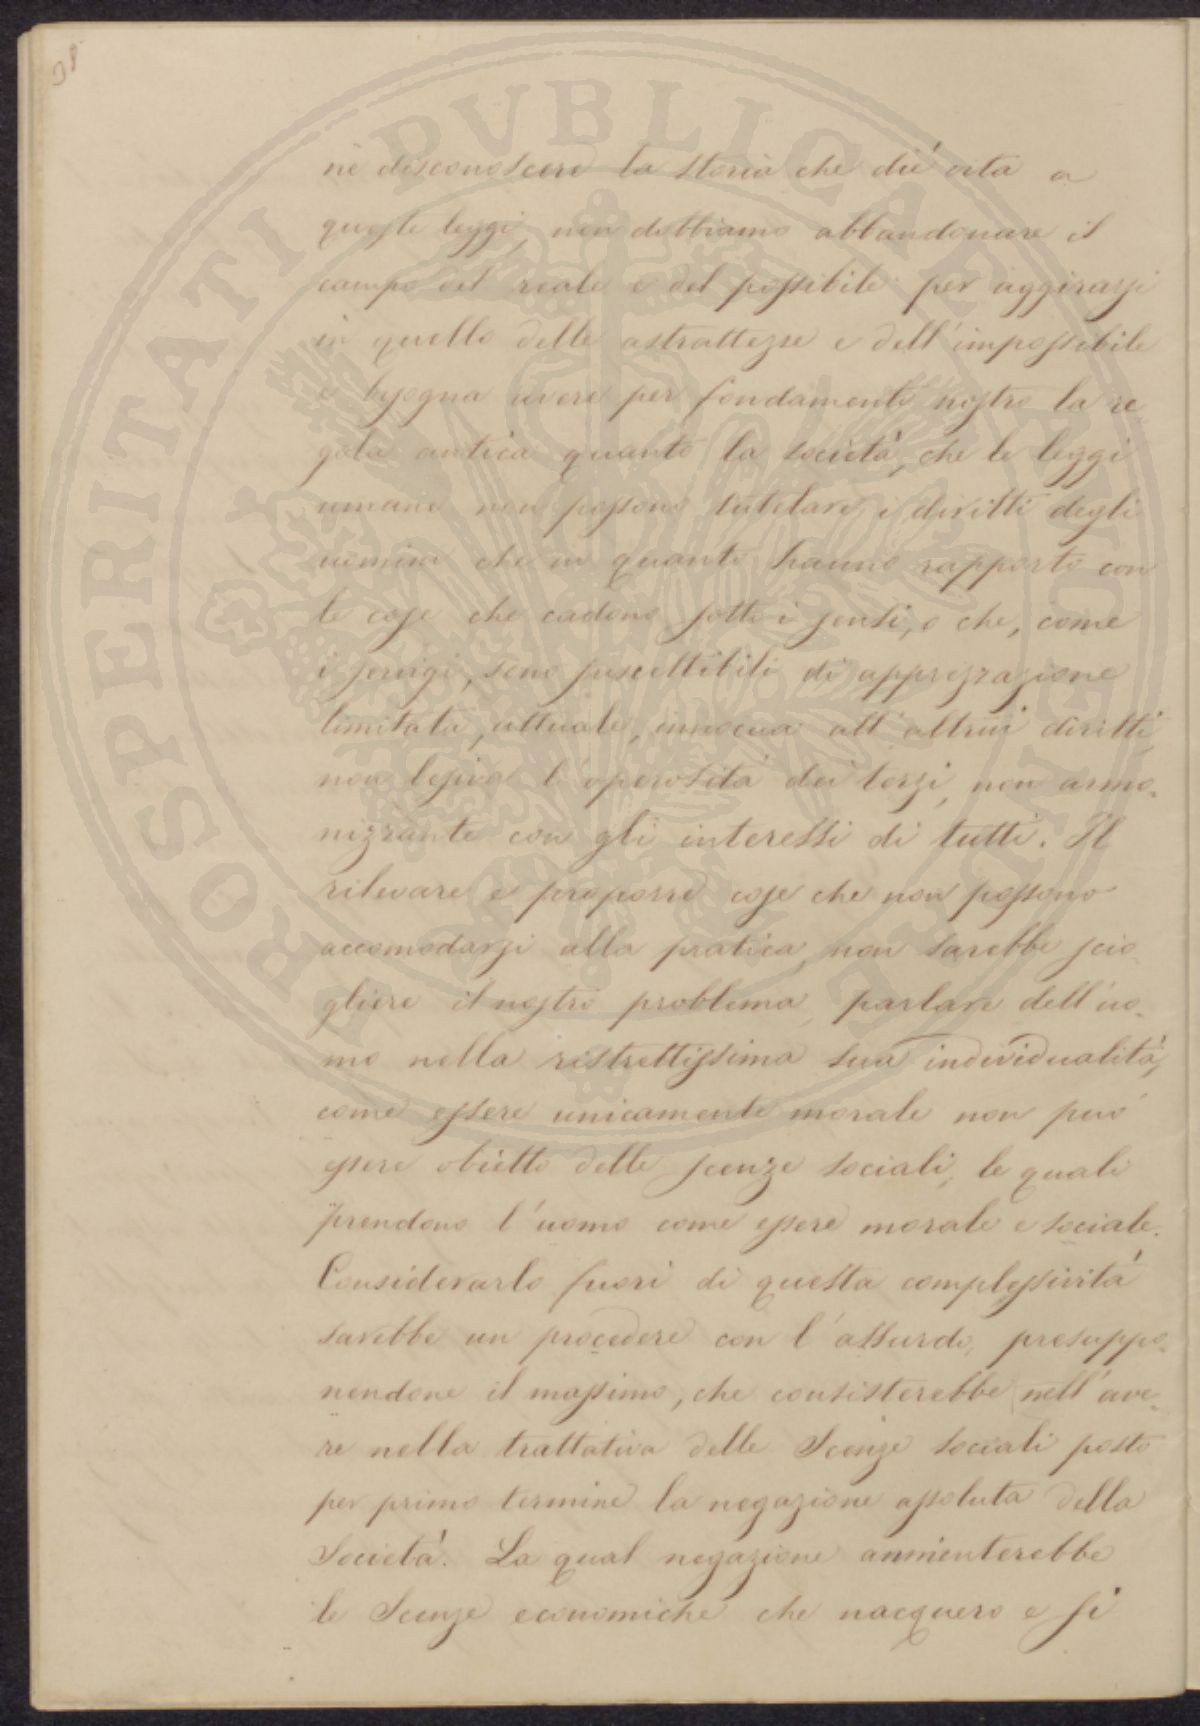 38
nè disconoscere la storia che diè vita a
queste leggi, non dobbiamo abbandonare il
campo del reale e del possibile per aggirarsi
in quello delle astrattezze e dell'impossibile
e bisogna avere per fondamento nostro la re
gola antica quanto la società, che le leggi
umane non possono tutelare i diritti degli
uomini che in quanto hanno rapporto con
le cose che cadono sotto i sensi, o che, come
i servigi, sono suscettibili di apprezzazione
limitata, attuale, innocua all'altrui diritti,
non lesiva l'operosità dei terzi, non armo-
nizzante con gli interessi di tutti. Il
rilevare e proporre cose che non possono
accomodarsi alla pratica, non sarebbe scio
gliere il nostro problema, parlare dell'uo-
mo nella ristrettissima sua individualità,
come essere unicamente morale non può
essere obietto delle scenze sociali, le quali
prendono l'uomo come essere morale e sociale.
Considerarlo fuori di questa complessività
sarebbe un procedere con l'assurdo, presuppo-
nendone il massimo, che consisterebbe nell'ave-
re nella trattativa delle Scenze sociali posto
per primo termine la negazione assoluta della
Società. La qual negazione annienterebbe
le Scenze economiche che nacquero e si
PROSPERITATI PVBLICAE